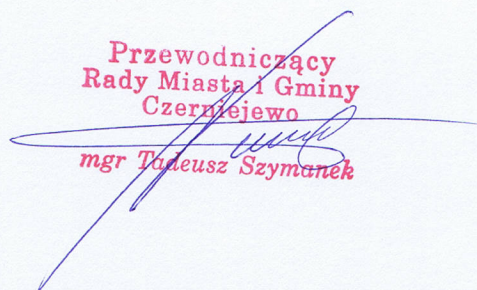 Przewodniczący
Rady Miasta i Gminy
Czerniejewo
mgr Tadeusz Szymanek